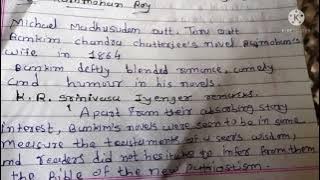 Rammohan Roy
Michael Madhusudan dutt. Toru dutt
Bankim chandra chatterjee's novel Rajmohan's
wife in 1864
Bankim deftly blended romance, comedy
and humour in his novels.
K.R. Srinivasa Iyenger remarks.
Apart from their absorbing story
interest, Bankim's novels were seen to be in some
measure the testaments of a seer's wisdom,
and readers did not hesitate to infer from them
the Bible of the new patriotism.